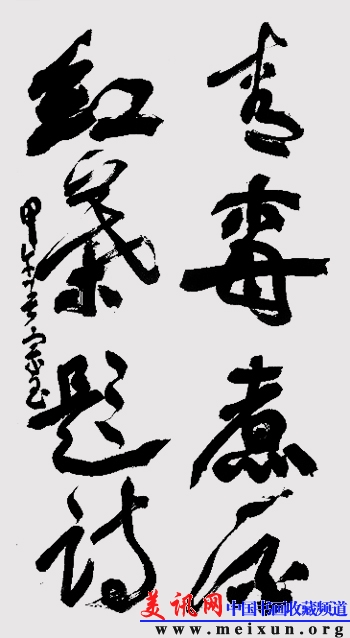 青梅煮酒
紅葉題詩
甲午
美讯网 中国书画收藏频道
www.meixun.org